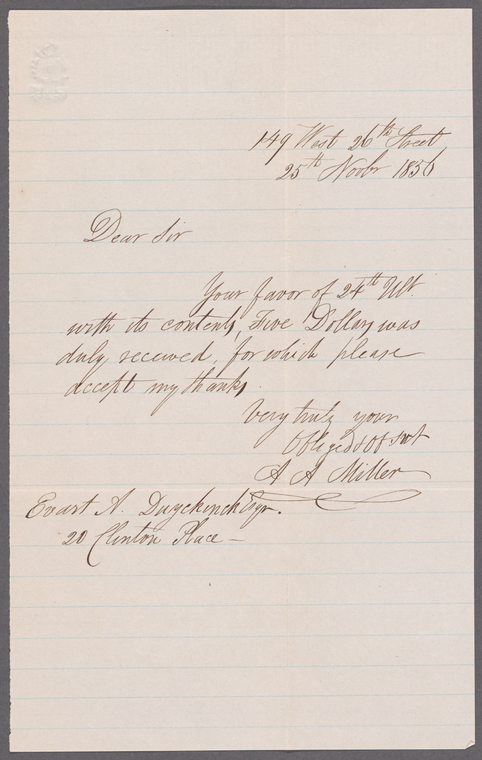 149 West 26th Street
25th Novbr 1856
Dear Sir
Your favor of 24th Ult.
with its contents, Five Dollars was
duly received, for which please
accept my thanks.
Very truly your
Obliged & Ob Svt
A A Miller
Evart A. Duyckinck Esqr.
20 Clinton Place –